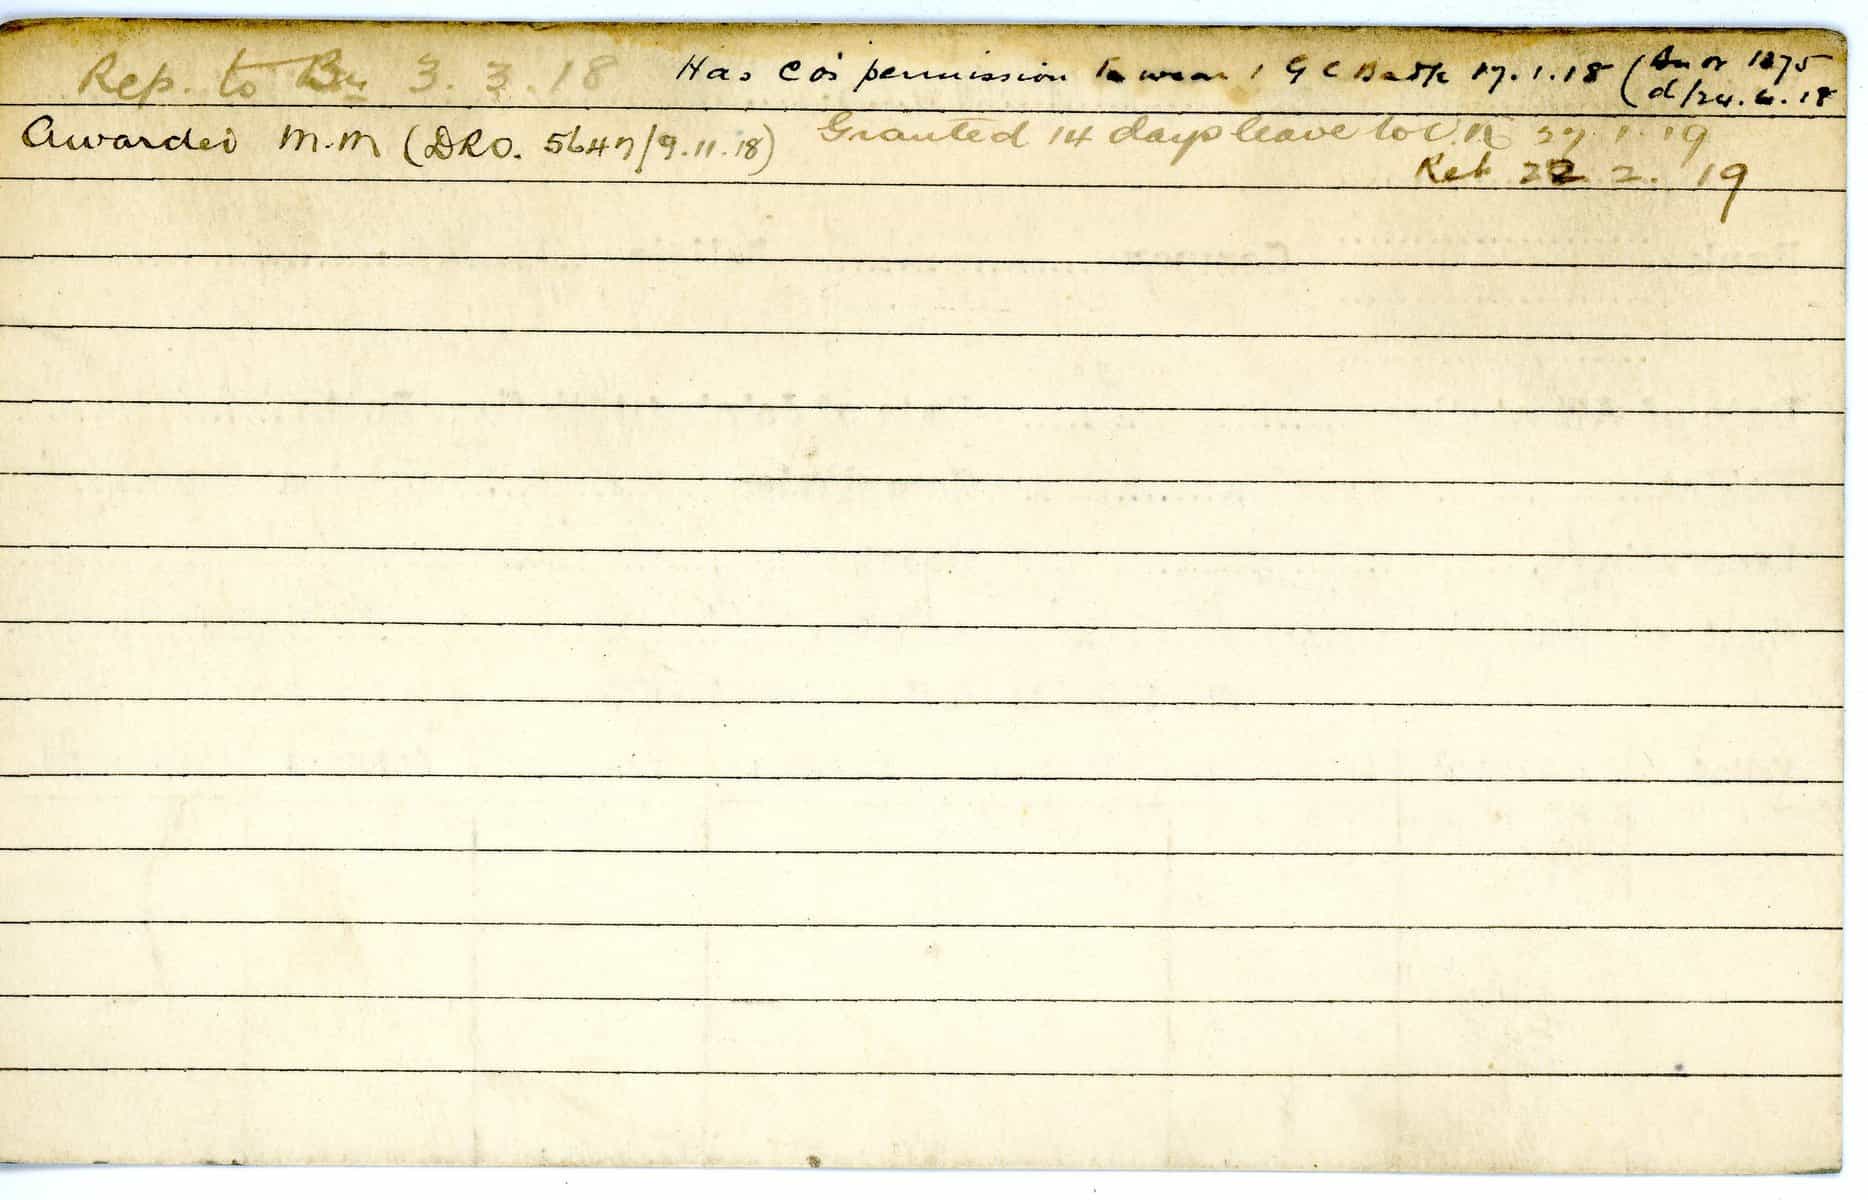 Rep. to Bn 3. 3. 18 Has Co's permission to wear 1 G C Badge 17.1.18 (Bn or 1275
d/24.6.18
Awarded M.M (DRO. 5647/9.11.18) Granted 14 days leave to U.K 1. 19
Ret 22 2. 19